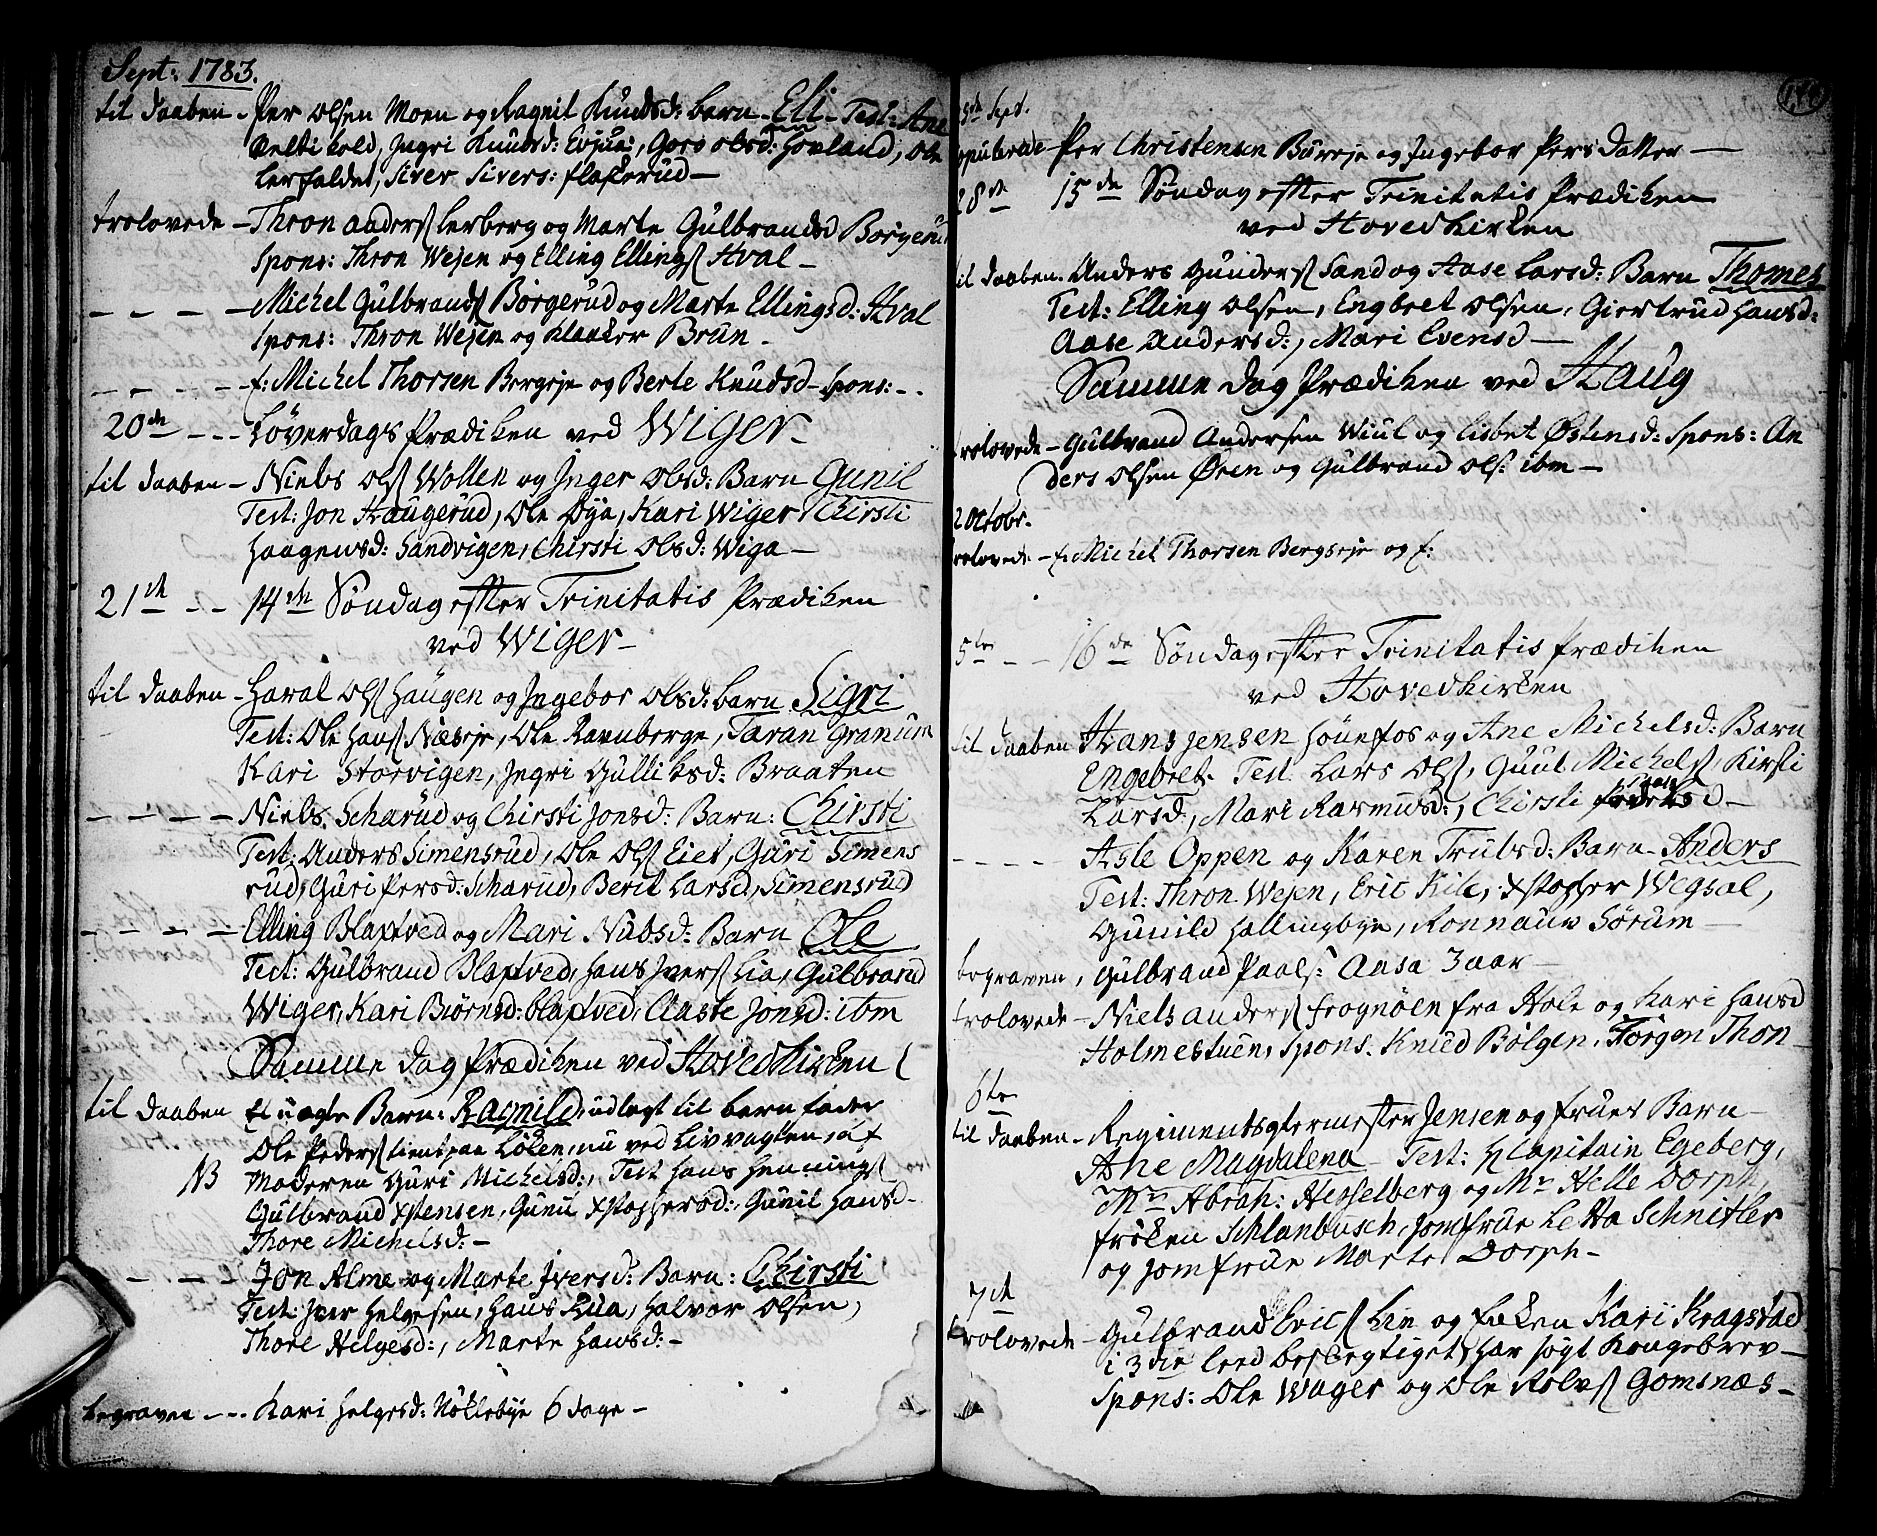 Sept: 1783.
til Daaben - Per Olsen Moen og Ragnil Knudsd: barn - Eli - Test: Ane
Velti kold, Ingri Knudsd: Evjua, Goro Olsd: Hovland, Ole
Lerfaldet, Siver Sivers: Flaskerud -
trolovede - Thron Anders Lerberg og Marte Gulbrandsd Borgerud
Spons: Thron Wejen og Elling Ellings Hval -
- - - - Michel Gulbrands Borgerud og Marte Ellingsd: Hval
Spons: Thron Wejen og Klokker Brun -
- - - - f: Michel Thorsen Bergseje og Berte Knudsd - Spons: - .
20de - - - Løverdags Prædiken ved Wiger -
til Daaben - Niels Ols Wollen og Inger Olsd: Barn Gunil
Test: Jon Haugerud, Ole Øya, Kari Wiger, Chirsti
Haagensd: Sandvigen, Chirsti Olsd: Wiga -
21de - - 14de Søndag efter Trinitatis Prædiken
ved Wiger -
til Daaben - Haral Ols Haugen og Ingebor Olsd: barn Sigri
Test: Ole Hans Næseje, Ole Ravnberge, Taran Granum
Kari Storvigen, Ingri Gulliksd: Braaten
- - - - Niels Scharud og Chirsti Jonsd: Barn: Chirsti
Test: Anders Simensrud, Ole Ols Eier, Guri Simens
rud, Guri Persd: Scharud, Berit Larsd, Simensrud
- - - - Elling Blaxtved og Mari Nubsd: Barn Ole
Test: Gulbrand Blaxtved, Hans Ivers Lia, Gulbrand
Wiger, Kari Biørnsd: Blaxtved, Aaste Jonsd: ibm
Samme Dag Prædiken ved Hovedkirken
til Daaben Et uægte Barn: Ragnild, udlagt til barnefader
Ole Peders tient paa Løken, nu ved Livvagten, af
NB Moderen Guri Michelsd:, Test Hans Hennings
Gulbrand Xstensen, Guni Xstophersd:, Gunil Hansd -
Thore Michelsd: -
- - - - Jon Alme og Marte Iversd: Barn: Chirsti
Test: Iver Helgesen, Hans Lua, Halvor Olsen,
Thore Helgesd:, Marte Hansd: -
begraven - - - Kari Helgesd: Nøklebye 6 dage -
5de Sept.
opulerede - Per Christensen Bureje og Ingebor Persdatter -
28de 15de Søndag efter Trinitatis Prædiken
ved Hovedkirken
til Daaben. Anders Gunders Sand og Aase Larsd: Barn Thomes
Test: Elling Olsen, Engbret Olsen, Giertrud Hansd:
Aase Andersd:, Mari Evensd -
Samme Dag Prædiken ved Haug
trolovede - Gulbrand Andersen Wiul og Lisbet Østensd: Spons: An
ders Olsen Øren og Gulbrand Ols: ibm -
2 Octobr.
trolovede - f: Michel Thorsen Bergseje og f:
5te - - 16de Søndag efter Trinitatis Prædiken
ved Hovedkirken
til Daaben Hans Jensen Hønefos og Ane Michelsd: Barn
Engebret. Test. Lars Ols, Guul Michels, Kirsti
Larsd:, Mari Rasmusd:, Chirsti
- - - - Asle Oppen og Karen Trulsd: Barn - Anders
Test: Thron Wejen, Eric Kile, Xstopher Wegsal,
Gunild Hallingbye, Ronnaug Sørum -
begraven, Gulbrand Paals: Aasa 3 aar -
trolovede - Niels Anders Frognøen fra Hole og Kari Hansd
Holmestuen, Spons: Knud Bølgen, Jørgen Thon -
6te
til Daaben - Regimentsqtermester Jensen og Frues Barn -
Ane Magdalena - Test: H Capitain Egeberg,
Mr Abrah: Hesselberg og Mr Helle Dorph,
Frøken Schlanbusch, Jomfrue Letta Schnitler
og Jomfrue Marte Dorph -
7de
trolovede - Gulbrand Erics Lin og Enken Kari Kragstad
i 3die leed besvogtiget, har søgt Kongebrev -
Spons: Ole Wager og Ole Rolvs Gomsnæs -